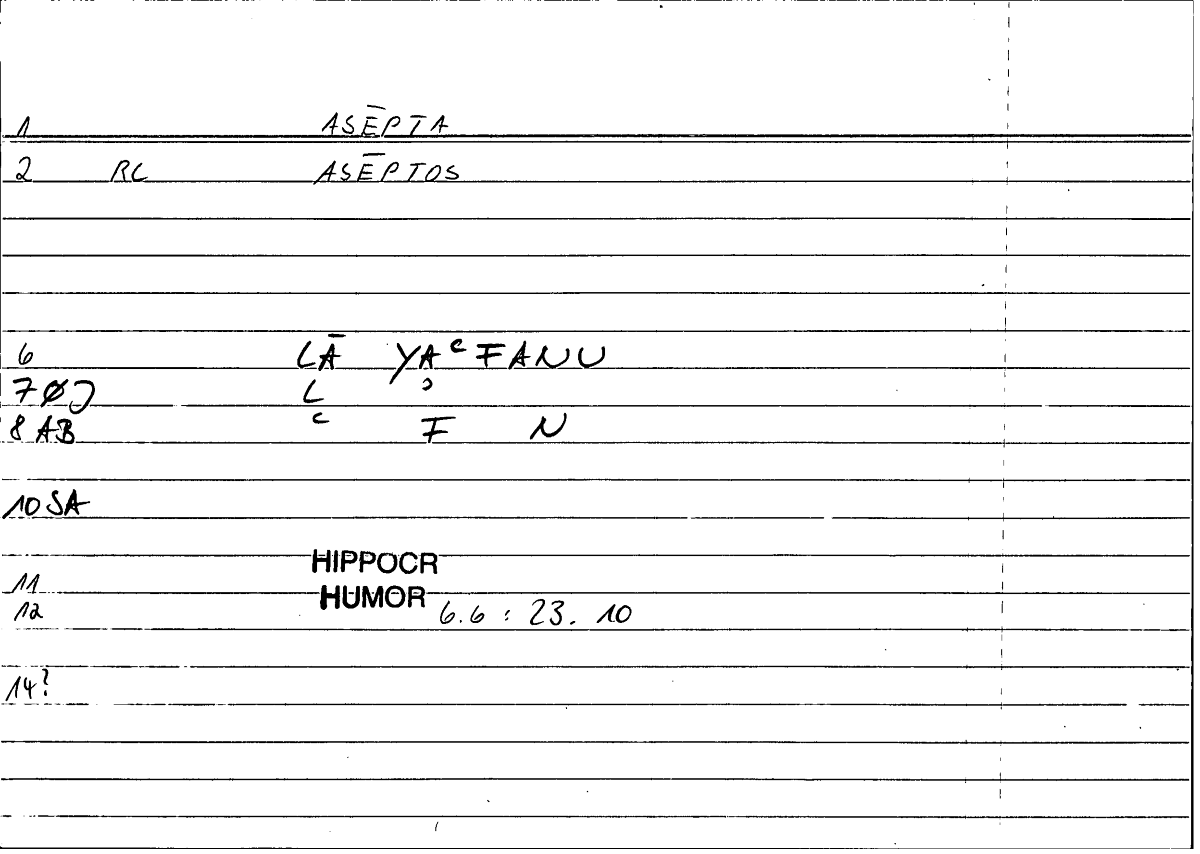 1 ASĒPTA
2 RC ASĒPTOS
6 LĀ YAᶜFANU
7 ØJ L ʾ
8 AB ᶜ F N
10 SA
HIPPOCR
11 HUMOR
12 6.6 : 23. 10
14?